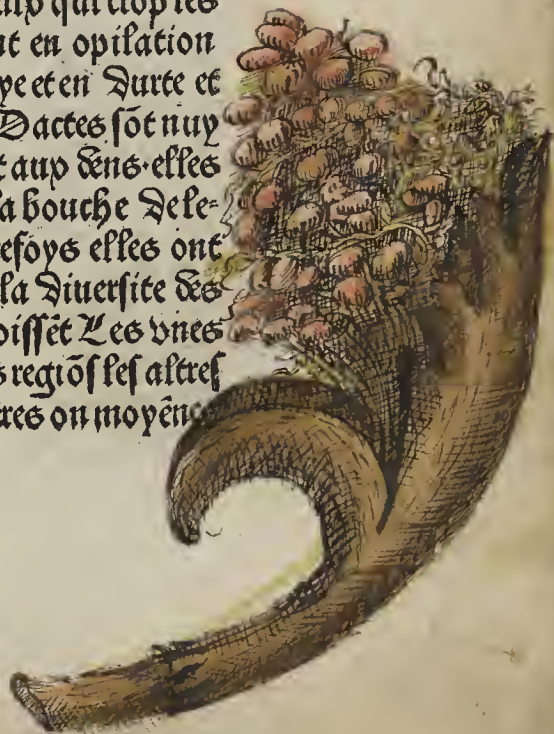 qui trop les
nt en opilation
ye et en Durte et
Dactes sōt nuy
t aux dens·elles
a bouche Dele-
efoys elles ont
la Diuersite des
oissēt Les vnes
s regiōs les altres
tres on moyēn